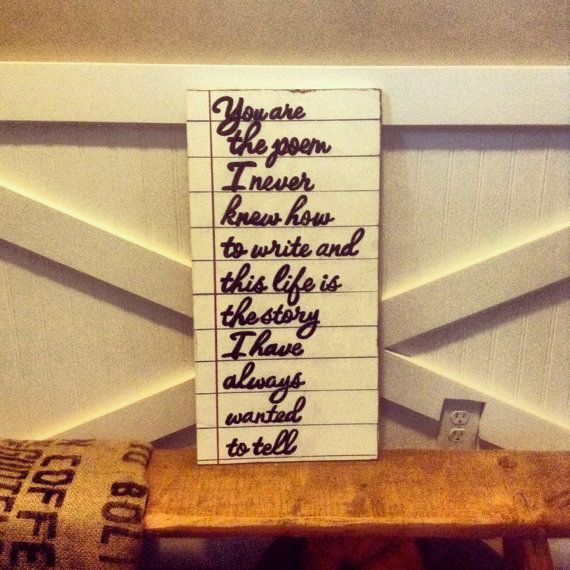 You are
the poem
I never
knew how
to write and
this life is
the story
I have
always
wanted
to tell
COFFEE
BOL